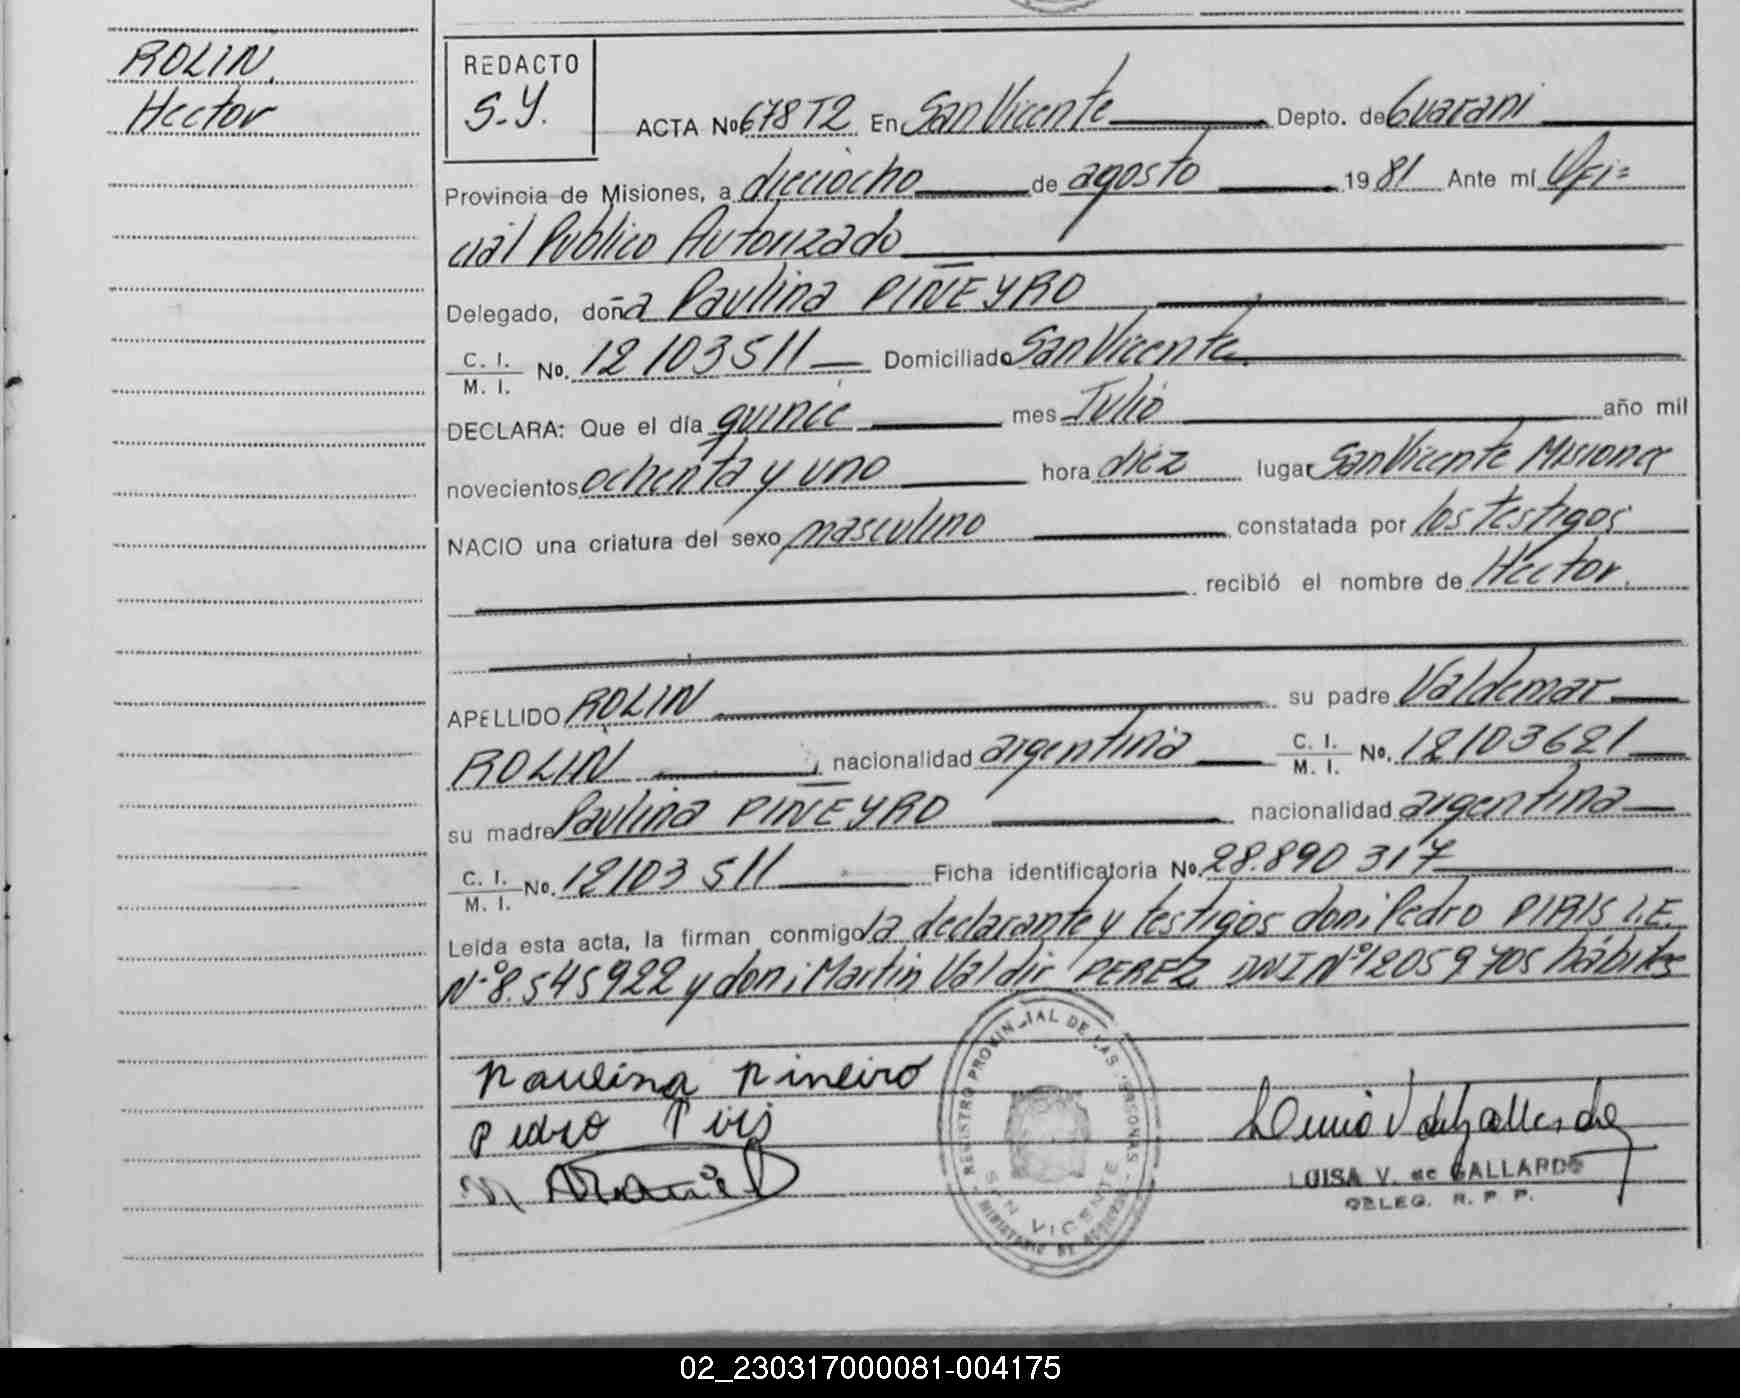 ROLIN
Hector
REDACTO
S.Y.
ACTA Nº 678 T2 En San Vicente Depto. de Guarani
Provincia de Misiones, a dieciocho de agosto 1981 Ante mí Ofi=
cial Publico Autorizado
Delegado, doña Paulina PIÑEYRO
C. I. / M. I. Nº. 12103511 Domiciliado San Vicente.
DECLARA: Que el día quince mes Julio año mil
novecientos ochenta y uno hora diez lugar San Vicente Misiones
NACIO una criatura del sexo masculino constatada por los testigos
recibió el nombre de Hector.
APELLIDO ROLIN su padre Valdemar
ROLIN, nacionalidad argentina C. I. / M. I. Nº. 12103621
su madre Paulina PIÑEYRO nacionalidad argentina
C. I. / M. I. Nº. 12103511 Ficha identificatoria Nº. 28.890317
Leída esta acta, la firman conmigo la declarante y testigos don: Pedro PIRIS L.E.
Nº 8.545922 y don: Martin Valdir PEREZ DNI Nº 12059705 hábiles
Paulina Pineiro
Pedro Piris
REGISTRO PROVINCIAL DE LAS PERSONAS
SAN VICENTE
LUISA V. de GALLARDO
DELEG. R. P. P.
02_230317000081-004175